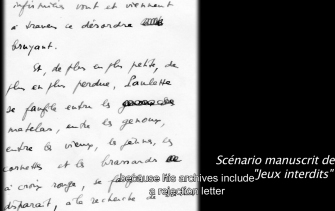 infirmiers vont et viennent
à travers ce désordre
bruyant.
Et, de plus en plus petite, de
plus en plus perdue, Paulette
se faufile entre les
matelas, entre les genoux,
entre les vieux, les
cornettes et les brassards
à croix rouge, se
disparaît, à la recherche de
Scénario manuscrit de
"Jeux interdits"
because his archives include
a rejection letter